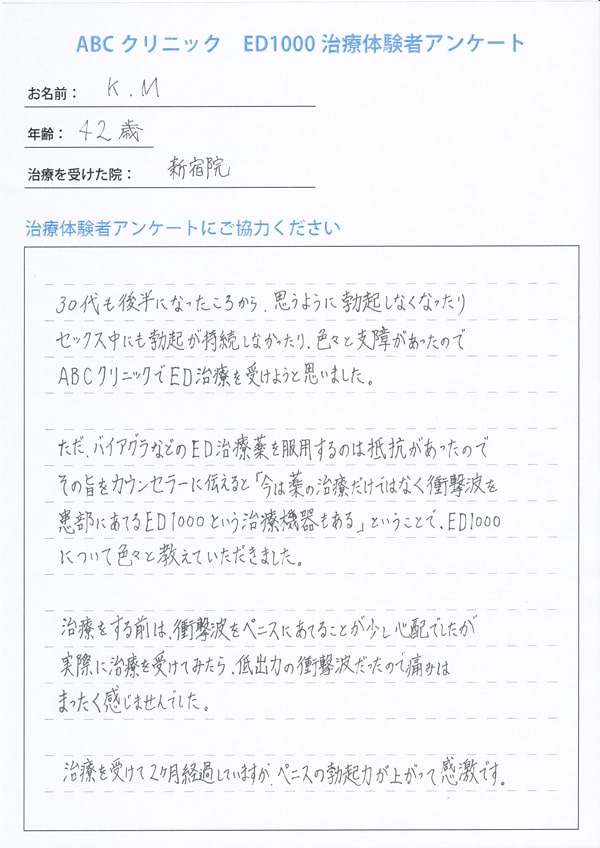 ABCクリニック ED1000治療体験者アンケート
お名前： K.M
年齢： 42歳
治療を受けた院： 新宿院
治療体験者アンケートにご協力ください
30代も後半になったころから、思うように勃起しなくなったり
セックス中にも勃起が持続しなかったり、色々と支障があったので
ABCクリニックでED治療を受けようと思いました。
ただ、バイアグラなどのED治療薬を服用するのは抵抗があったので
その旨をカウンセラーに伝えると「今は薬の治療だけではなく衝撃波を
患部にあてるED1000という治療機器もある」ということで、ED1000
について色々と教えていただきました。
治療をする前は、衝撃波をペニスにあてることが少し心配でしたが
実際に治療を受けてみたら、低出力の衝撃波だったので痛みは
まったく感じませんでした。
治療を受けて2ヶ月経過していますが、ペニスの勃起力が上がって感激です。